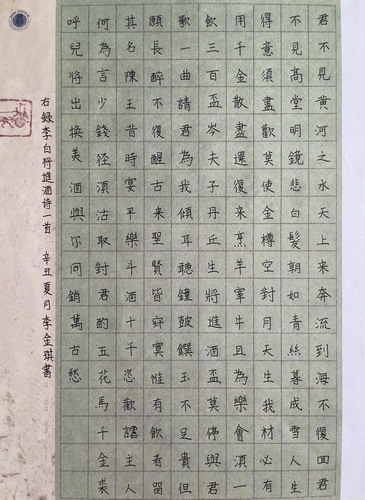 君不見黃河之水天上來奔流到海不復回君
不見高堂明鏡悲白髮朝如青絲暮成雪人生
得意須盡歡莫使金樽空對月天生我材必有
用千金散盡還復來烹羊宰牛且為樂會須一
飲三百盃岑夫子丹丘生將進酒盃莫停與君
歌一曲請君為我傾耳聽鐘鼓饌玉不足貴但
願長醉不復醒古來聖賢皆寂寞惟有飲者留
其名陳王昔時宴平樂斗酒十千恣歡謔主人
何為言少錢徑須沽取對君酌五花馬千金裘
呼兒將出換美酒與尔同銷萬古愁
右錄李白將進酒詩一首 辛丑夏月李金琪書